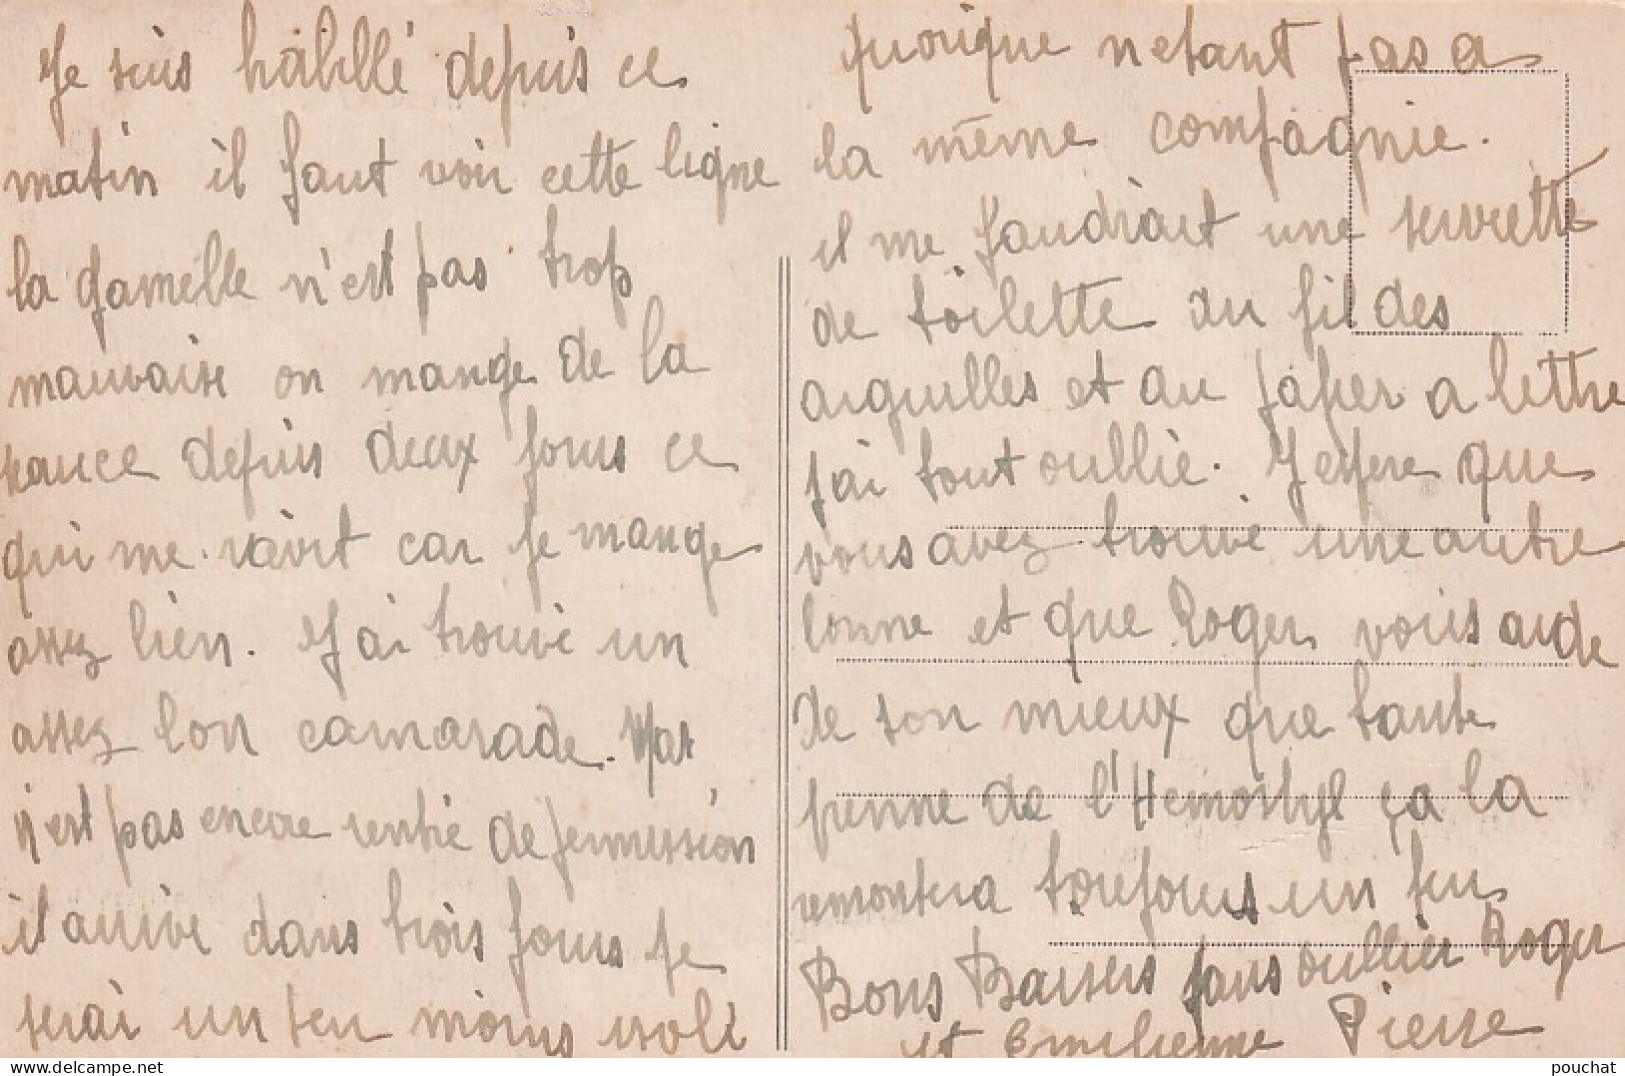 Je suis habillé depuis ce
matin il faut voir cette ligne
la gamelle n'est pas trop
mauvaise on mange de la
sauce depuis deux jours ce
qui me ravit car je mange
assez bien. J'ai trouvé un
assez bon camarade. Mar
n'est pas encore rentré de permission
il arrive dans trois jours je
serai un peu moins isolé
quoique netant pas a
la même compagnie.
il me faudrait une serviette
de toilette du fil des
aiguilles et du papier a lettre
j'ai tout oublié. J'espere que
vous avez trouvé une autre
bonne et que Roger vous aide
de son mieux que tante
prenne de l'Hemostyl ça la
remontera toujours un peu
Bons Baisers sans oublier Roger
et Emilienne Pierre
pouchat